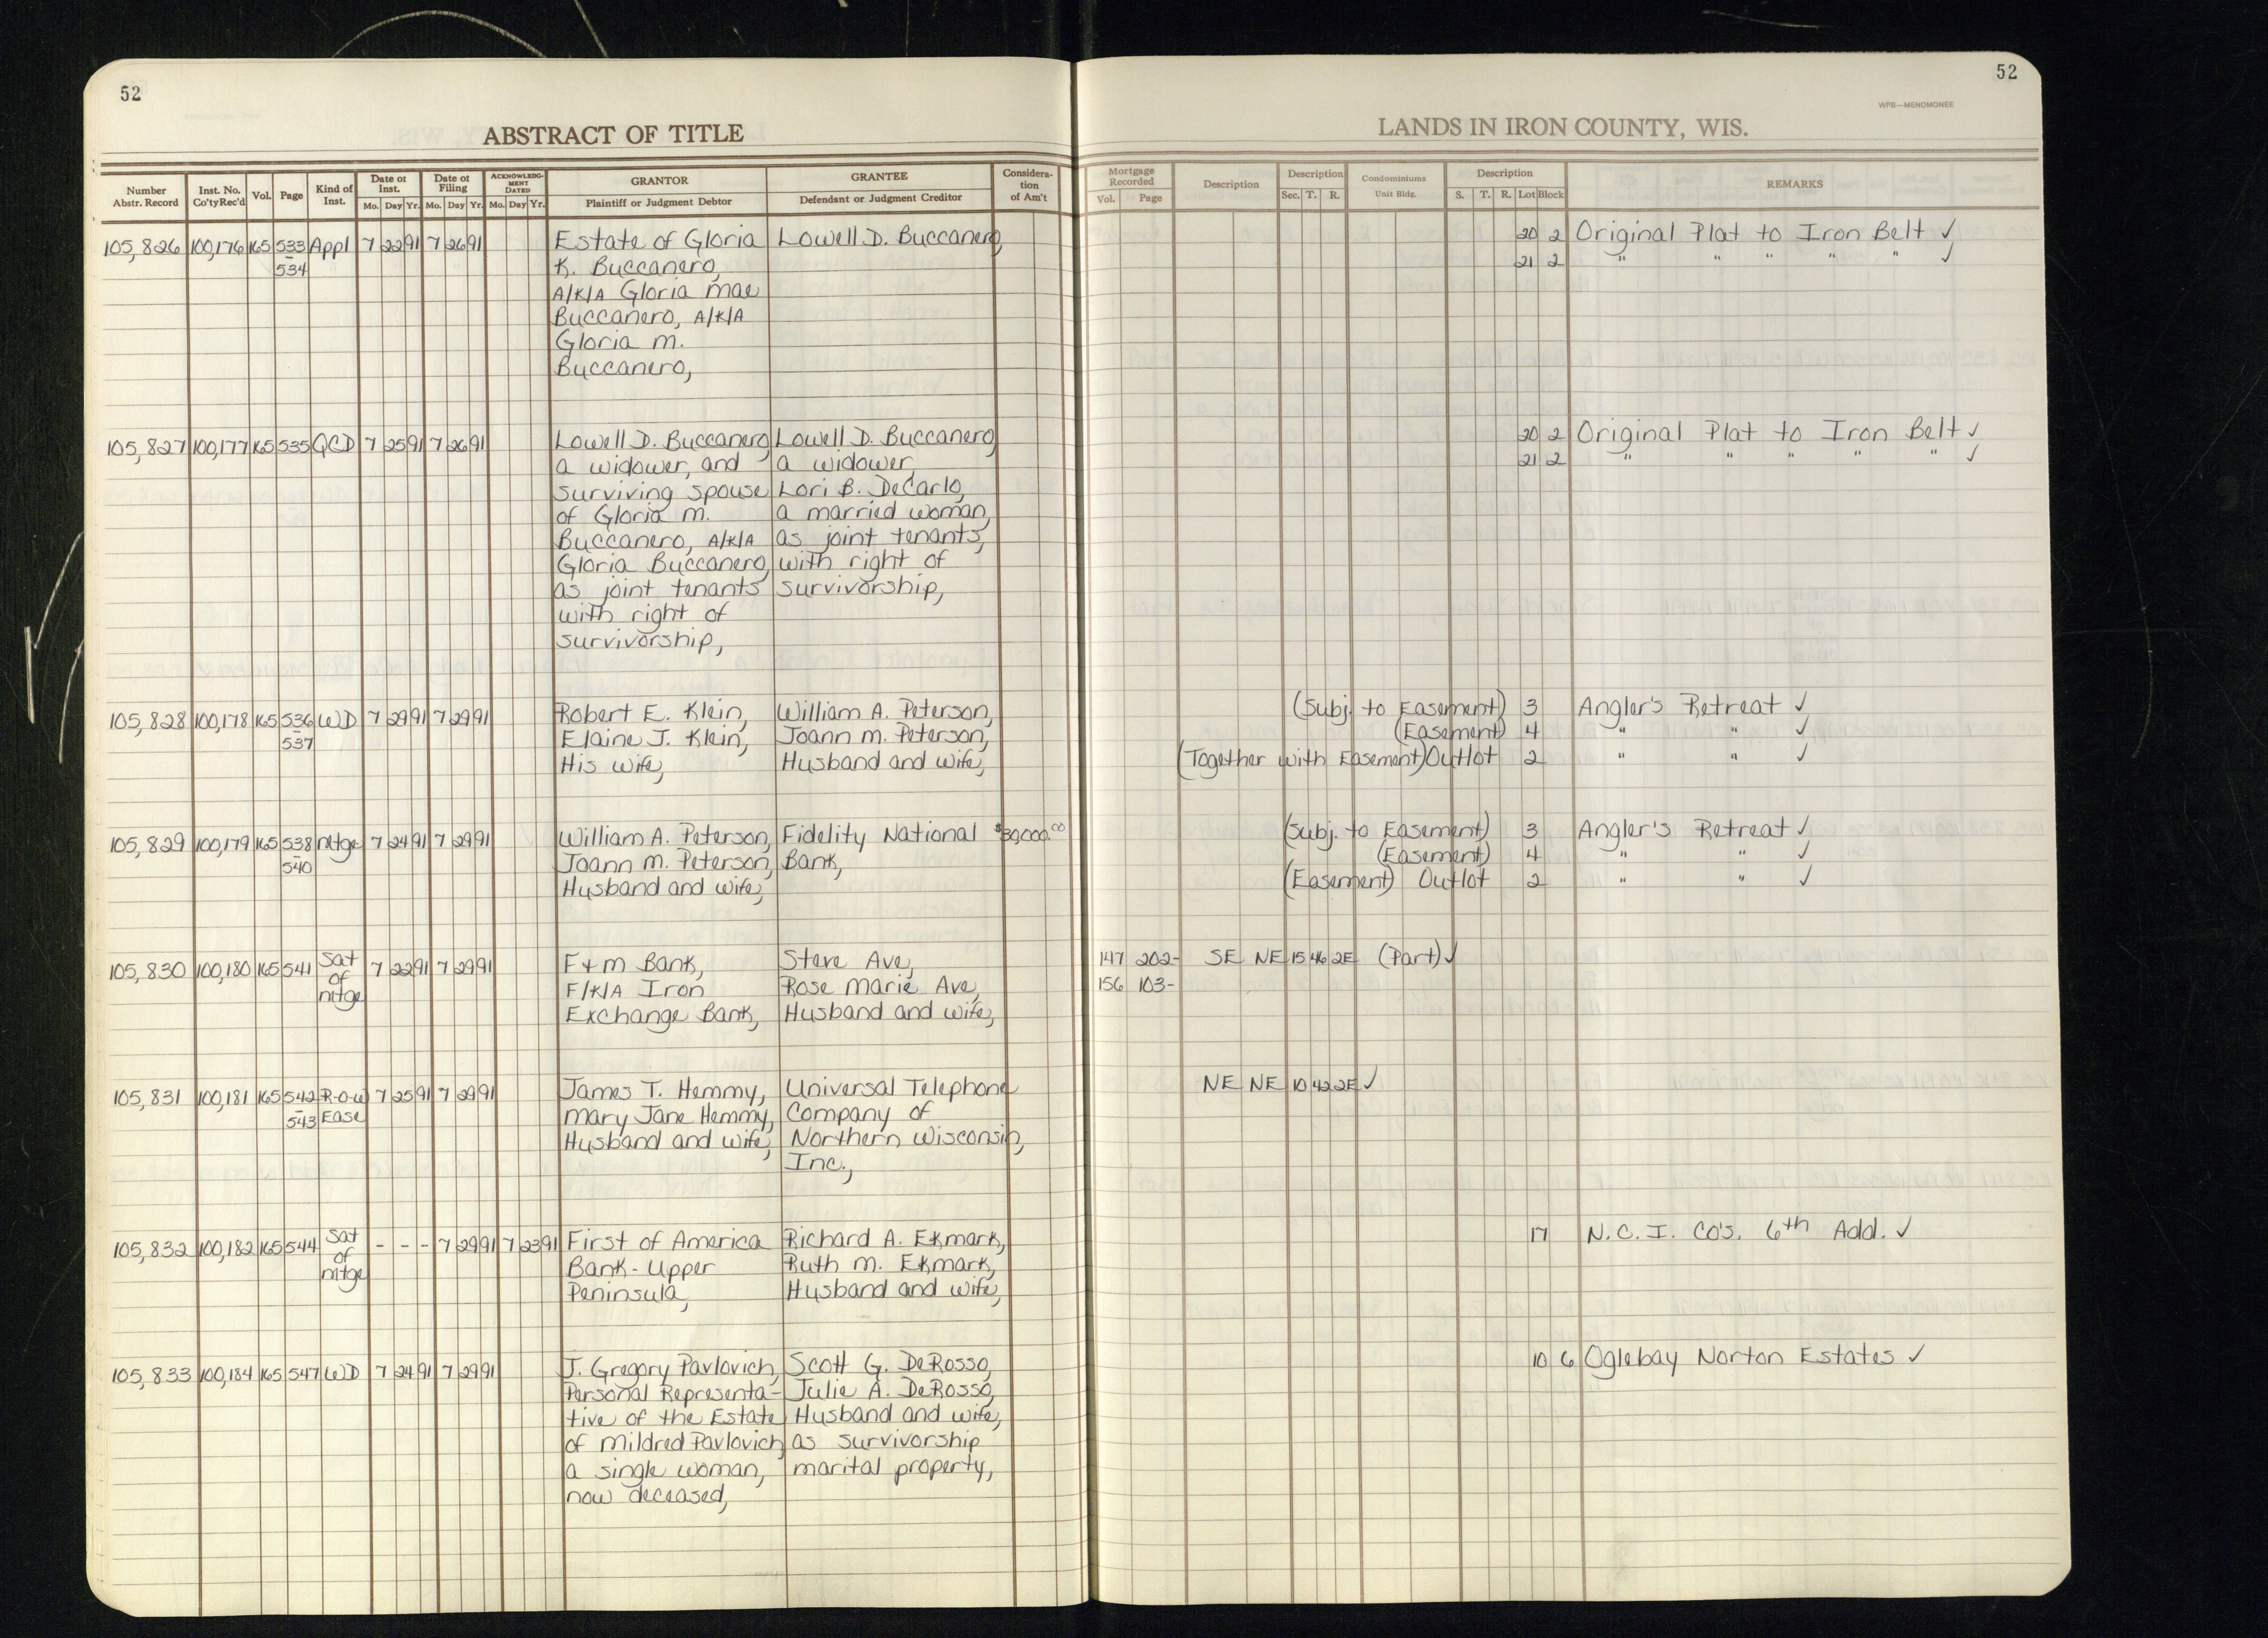 52
52
WPB—MENOMONEE
ABSTRACT OF TITLE
LANDS IN IRON COUNTY, WIS.
Number Abstr. Record
Inst. No. Co'ty Rec'd
Vol.
Page
Kind of Inst.
Date of Inst.
Mo. Day Yr.
Date of Filing
Mo. Day Yr.
ACKNOWLEDGMENT DATED
Mo. Day Yr.
GRANTOR
Plaintiff or Judgment Debtor
GRANTEE
Defendant or Judgment Creditor
Consideration of Am't
Mortgage Recorded
Vol. Page
Description
Description
Sec. T. R.
Condominiums
Unit Bldg.
Description
S. T. R. Lot Block
REMARKS
105,826 100,176 165 533 Appl 7 22 91 7 26 91 Estate of Gloria Lowell D. Buccanero, 20 2 Original Plat to Iron Belt ✓
- 534 K. Buccanero, 21 2 " " " " " ✓
A/K/A Gloria Mae
Buccanero, A/K/A
Gloria M.
Buccanero,
105,827 100,177 165 535 QCD 7 25 91 7 26 91 Lowell D. Buccanero, Lowell D. Buccanero, 20 2 Original Plat to Iron Belt ✓
a widower, and a widower, 21 2 " " " " " ✓
surviving spouse Lori B. DeCarlo,
of Gloria M. a married woman,
Buccanero, A/K/A as joint tenants,
Gloria Buccanero, with right of
as joint tenants survivorship,
with right of
survivorship,
105,828 100,178 165 536 WD 7 29 91 7 29 91 Robert E. Klein, William A. Peterson, (Subj. to Easement) 3 Angler's Retreat ✓
- 537 Elaine J. Klein, Joann M. Peterson, (Easement) 4 " " ✓
His wife, Husband and wife, (Together with Easement) Outlot 2 " " ✓
105,829 100,179 165 538 Mtge 7 24 91 7 29 91 William A. Peterson, Fidelity National $30,000.00 (Subj. to Easement) 3 Angler's Retreat ✓
- 540 Joann M. Peterson, Bank, (Easement) 4 " " ✓
Husband and wife, (Easement) Outlot 2 " " ✓
105,830 100,180 165 541 Sat of Mtge 7 22 91 7 29 91 F & M Bank, Steve Ave, 147 202- SE NE 15 46 2E (Part) ✓
F/K/A Iron Rose Marie Ave, 156 103-
Exchange Bank, Husband and wife,
105,831 100,181 165 542 R-O-W 7 25 91 7 29 91 James T. Hemmy, Universal Telephone NE NE 10 42 2E ✓
- 543 Ease Mary Jane Hemmy, Company of
Husband and wife, Northern Wisconsin,
Inc.,
105,832 100,182 165 544 Sat of Mtge - - - 7 29 91 7 23 91 First of America Richard A. Ekmark, 17 N.C.I. Co's. 6th Add. ✓
Bank-Upper Ruth M. Ekmark,
Peninsula, Husband and wife,
105,833 100,184 165 547 WD 7 24 91 7 29 91 J. Gregory Pavlovich, Scott G. DeRosso, 10 6 Oglebay Norton Estates ✓
Personal Representa- Julie A. DeRosso,
tive of the Estate Husband and wife,
of Mildred Pavlovich, as survivorship
a single woman, marital property,
now deceased,